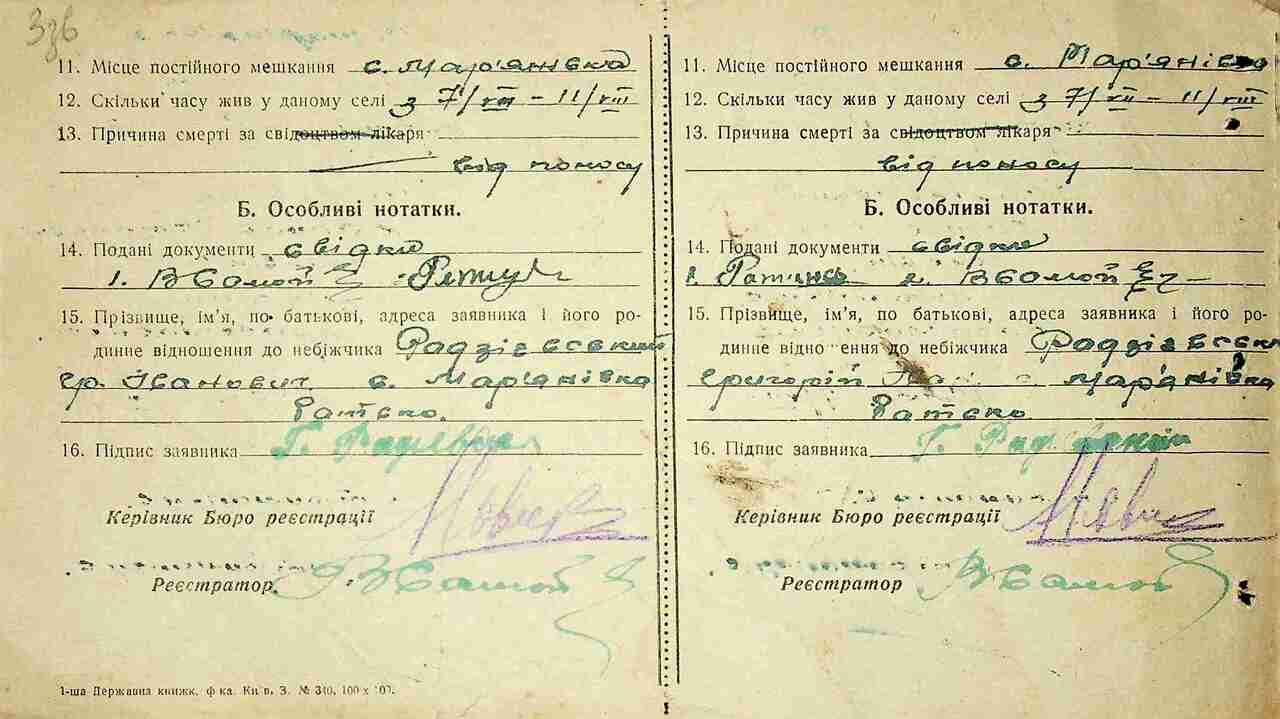 336
11. Місце постійного мешкання с. Мар'янівка
12. Скільки часу жив у даному селі з 7/VII – 11/VIII
13. Причина смерті за свідоцтвом лікаря
від поносу
Б. Особливі нотатки.
14. Подані документи свідки
1.
15. Прізвище, ім'я, по батькові, адреса заявника і його ро-
динне відношення до небіжчика Радзієвський
Гр. Іванович с. Мар'янівка
Батько.
16. Підпис заявника Г.
Керівник Бюро реєстрації
Реєстратор.
1-ша Державна книжк. ф-ка. Київ. З. № 340, 100 х 100.
11. Місце постійного мешкання с. Мар'янівка
12. Скільки часу жив у даному селі з 7/VII – 11/VIII
13. Причина смерті за свідоцтвом лікаря
від поносу
Б. Особливі нотатки.
14. Подані документи свідки
1. 2.
15. Прізвище, ім'я, по батькові, адреса заявника і його ро-
динне відношення до небіжчика Радзієвськ
Григорій с. Мар'янівка
Батько
16. Підпис заявника Г.
Керівник Бюро реєстрації
Реєстратор